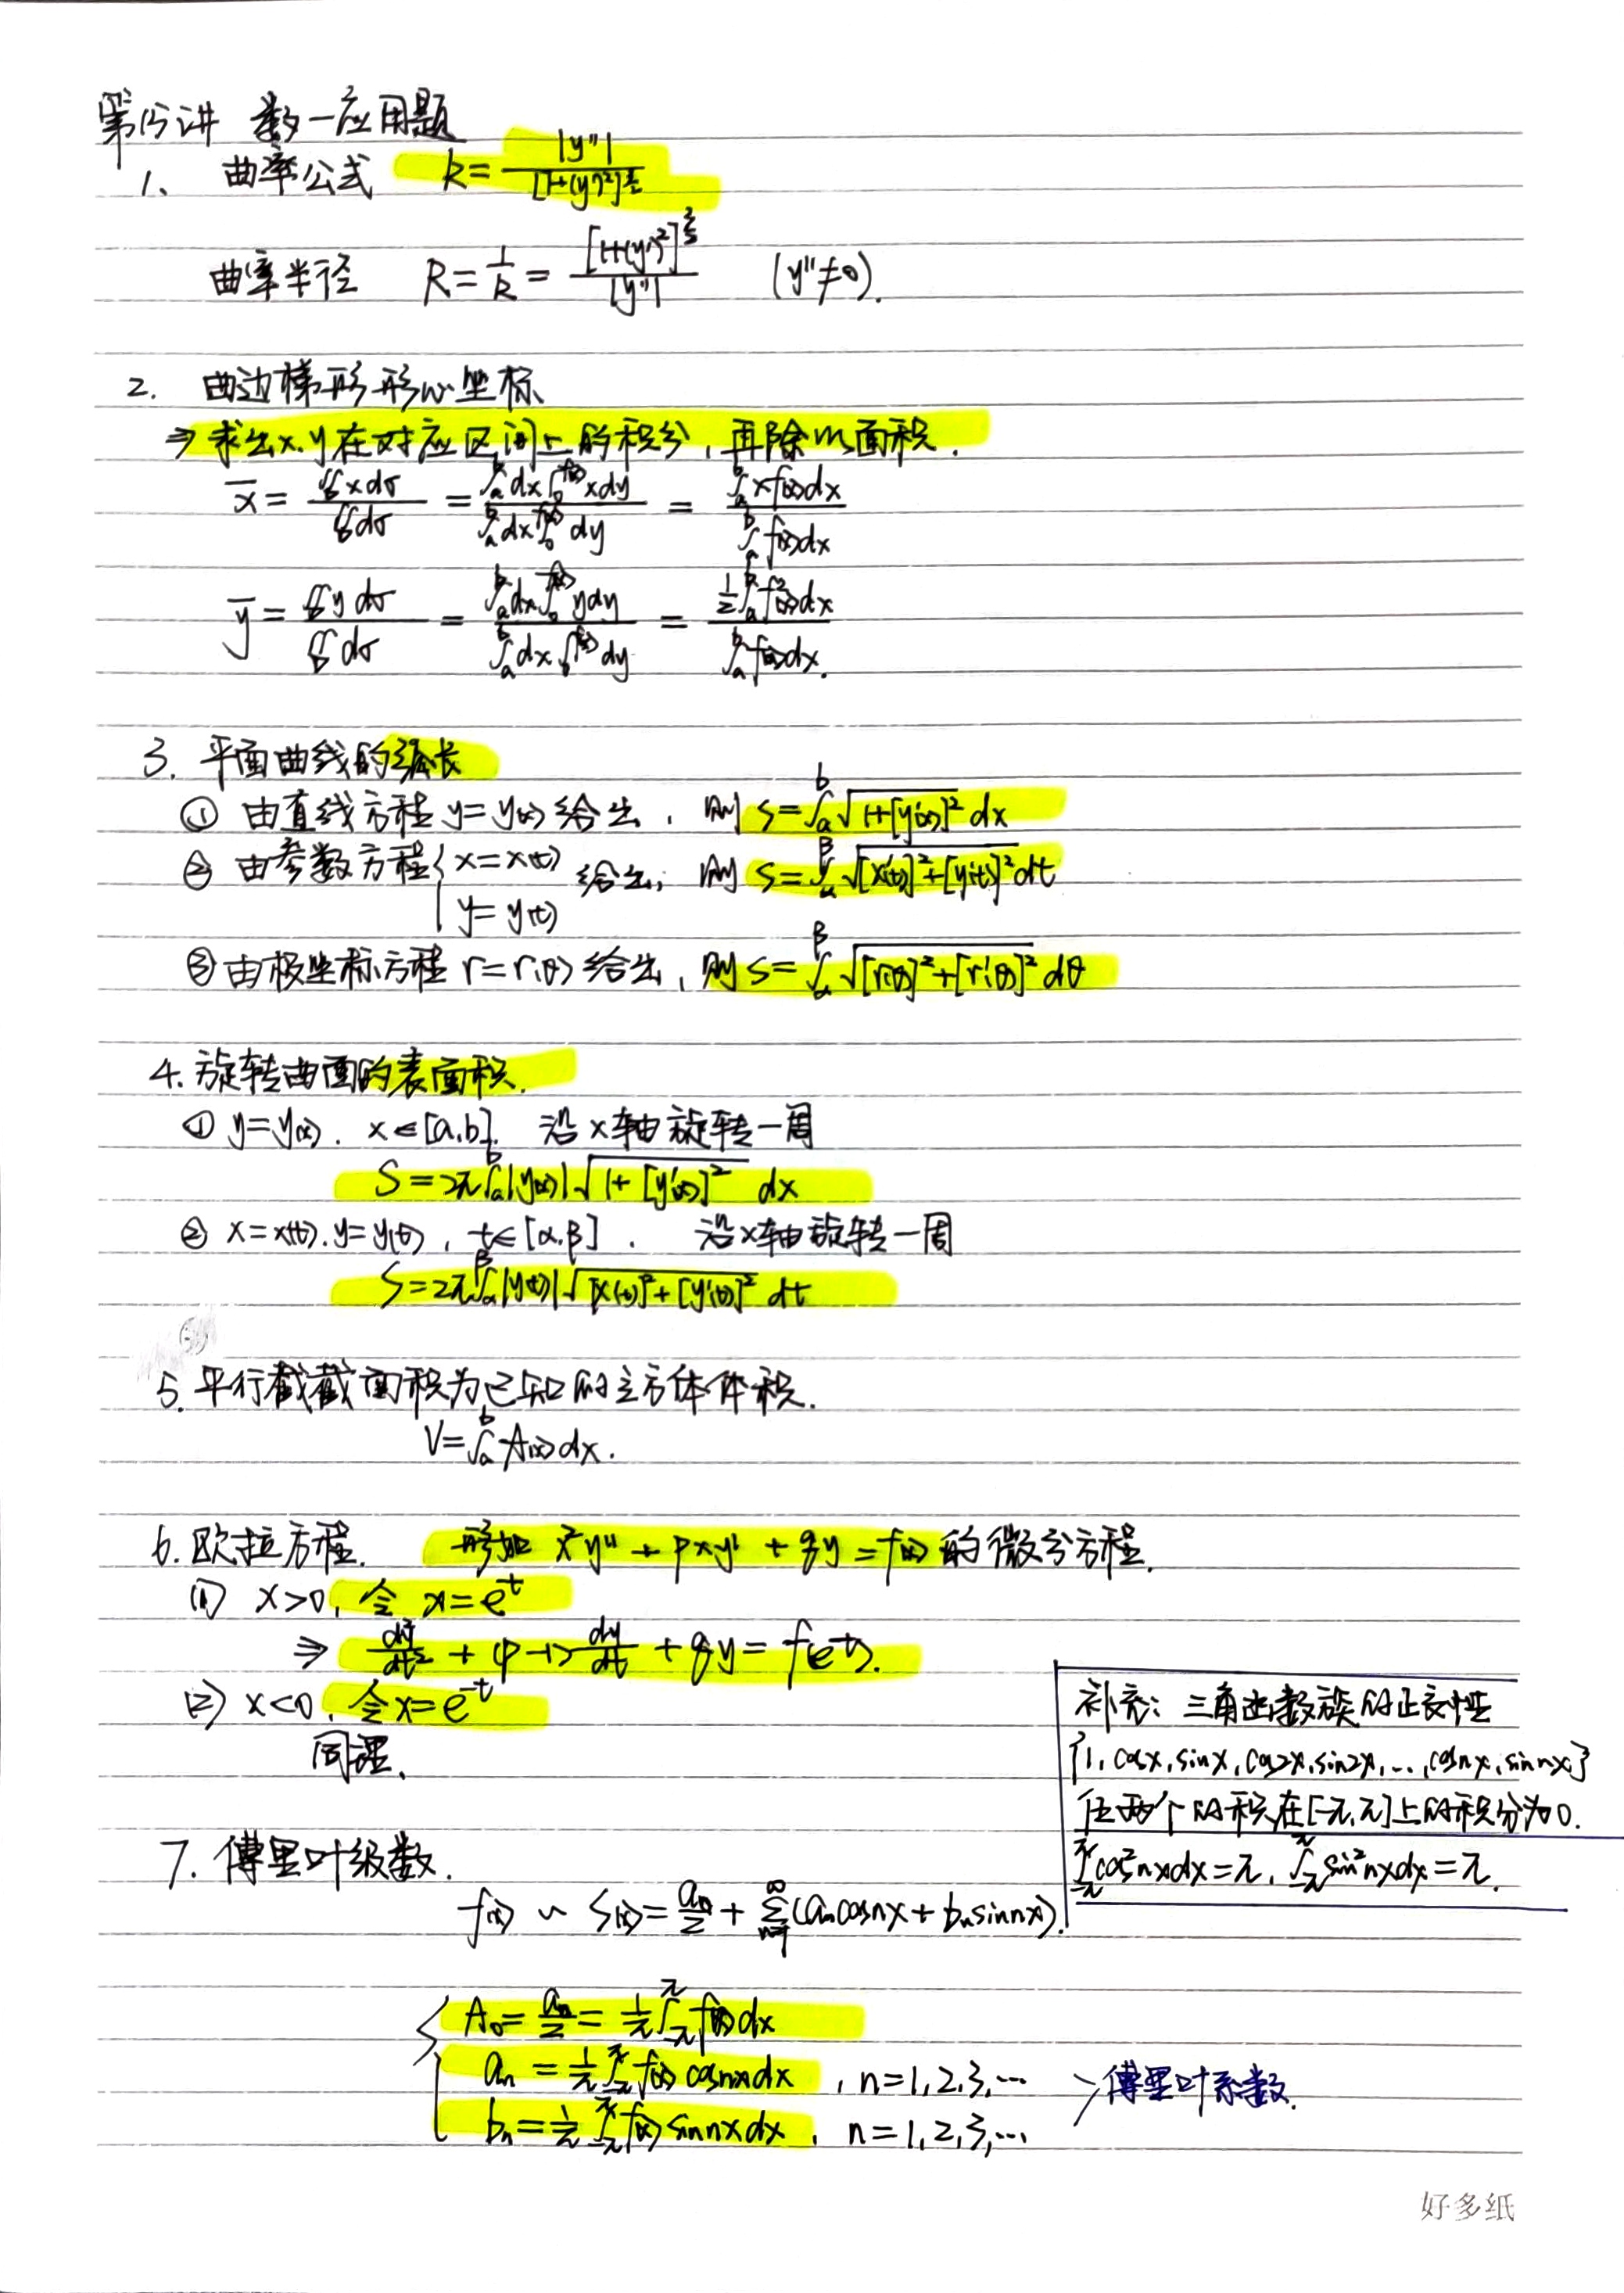 第15讲 数一应用题
1、 曲率公式 k = |y''| / [1+(y')²]^(3/2)
曲率半径 R = 1/k = [1+(y')²]^(3/2) / |y''| (y''≠0).
2. 曲边梯形形心坐标
⇒ 求出x,y在对应区间上的积分,再除以面积.
x̄ = ∬_D x dσ / ∬_D dσ = ∫_a^b dx∫_0^f(x) x dy / ∫_a^b dx∫_0^f(x) dy = ∫_a^b x f(x)dx / ∫_a^b f(x)dx
ȳ = ∬_D y dσ / ∬_D dσ = ∫_a^b dx∫_0^f(x) y dy / ∫_a^b dx∫_0^f(x) dy = ½∫_a^b f²(x)dx / ∫_a^b f(x)dx.
3. 平面曲线的弧长
① 由直线方程 y = y(x) 给出, 则 s = ∫_a^b √(1+[y'(x)]²) dx
② 由参数方程 { x = x(t) 给出, 则 s = ∫_α^β √([x'(t)]²+[y'(t)]²) dt
y = y(t)
③ 由极坐标方程 r = r(θ) 给出, 则 s = ∫_α^β √([r(θ)]²+[r'(θ)]²) dθ
4. 旋转曲面的表面积.
① y = y(x). x∈[a,b]. 沿x轴旋转一周
S = 2π∫_a^b |y(x)|√(1+[y'(x)]²) dx
② x = x(t). y = y(t), t∈[α,β]. 沿x轴旋转一周
S = 2π∫_α^β |y(t)|√([x'(t)]²+[y'(t)]²) dt
5. 平行截截面积为已知的立方体体积.
V = ∫_a^b A(x)dx.
6. 欧拉方程. 形如 x²y'' + pxy' + qy = f(x) 的微分方程.
(1) x>0, 令 x = e^t
⇒ d²y/dt² + (p-1)dy/dt + qy = f(e^t).
(2) x<0, 令x = e^-t
同理.
补充: 三角函数族的正交性
{1, cosx, sinx, cos2x, sin2x, ..., cosnx, sinnx}
任两个的积在[-π,π]上的积分为0.
∫_-π^π cos²nxdx = π, ∫_-π^π sin²nxdx = π.
7. 傅里叶级数.
f(x) ~ S(x) = a₀/2 + Σ_{n=1}^∞ (aₙcosnx + bₙsinnx).
{ A₀ = a₀/2 = 1/π ∫_-π^π f(x)dx
aₙ = 1/π ∫_-π^π f(x) cosnxdx, n = 1, 2, 3, ...
bₙ = 1/π ∫_-π^π f(x) sinnxdx, n = 1, 2, 3, ...
傅里叶系数.
好多纸